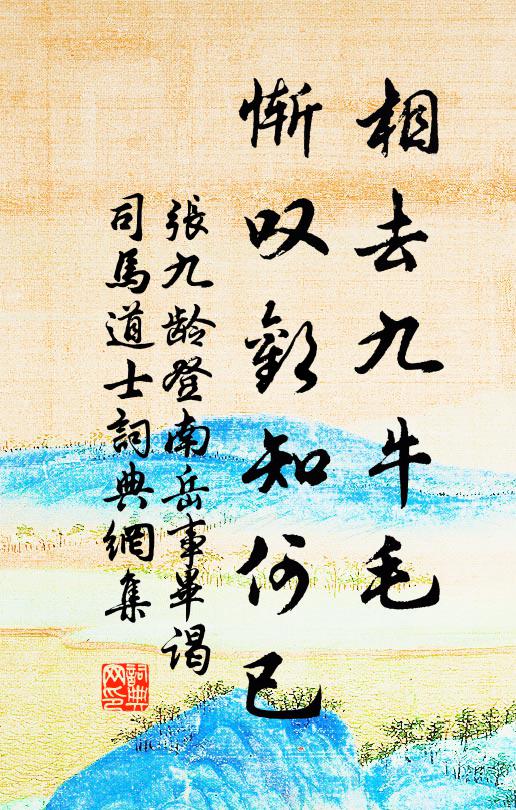 相去九牛毛
慚叹知何已
張九龄登南岳事畢謁
司馬道士詞典網集
詞典
网印